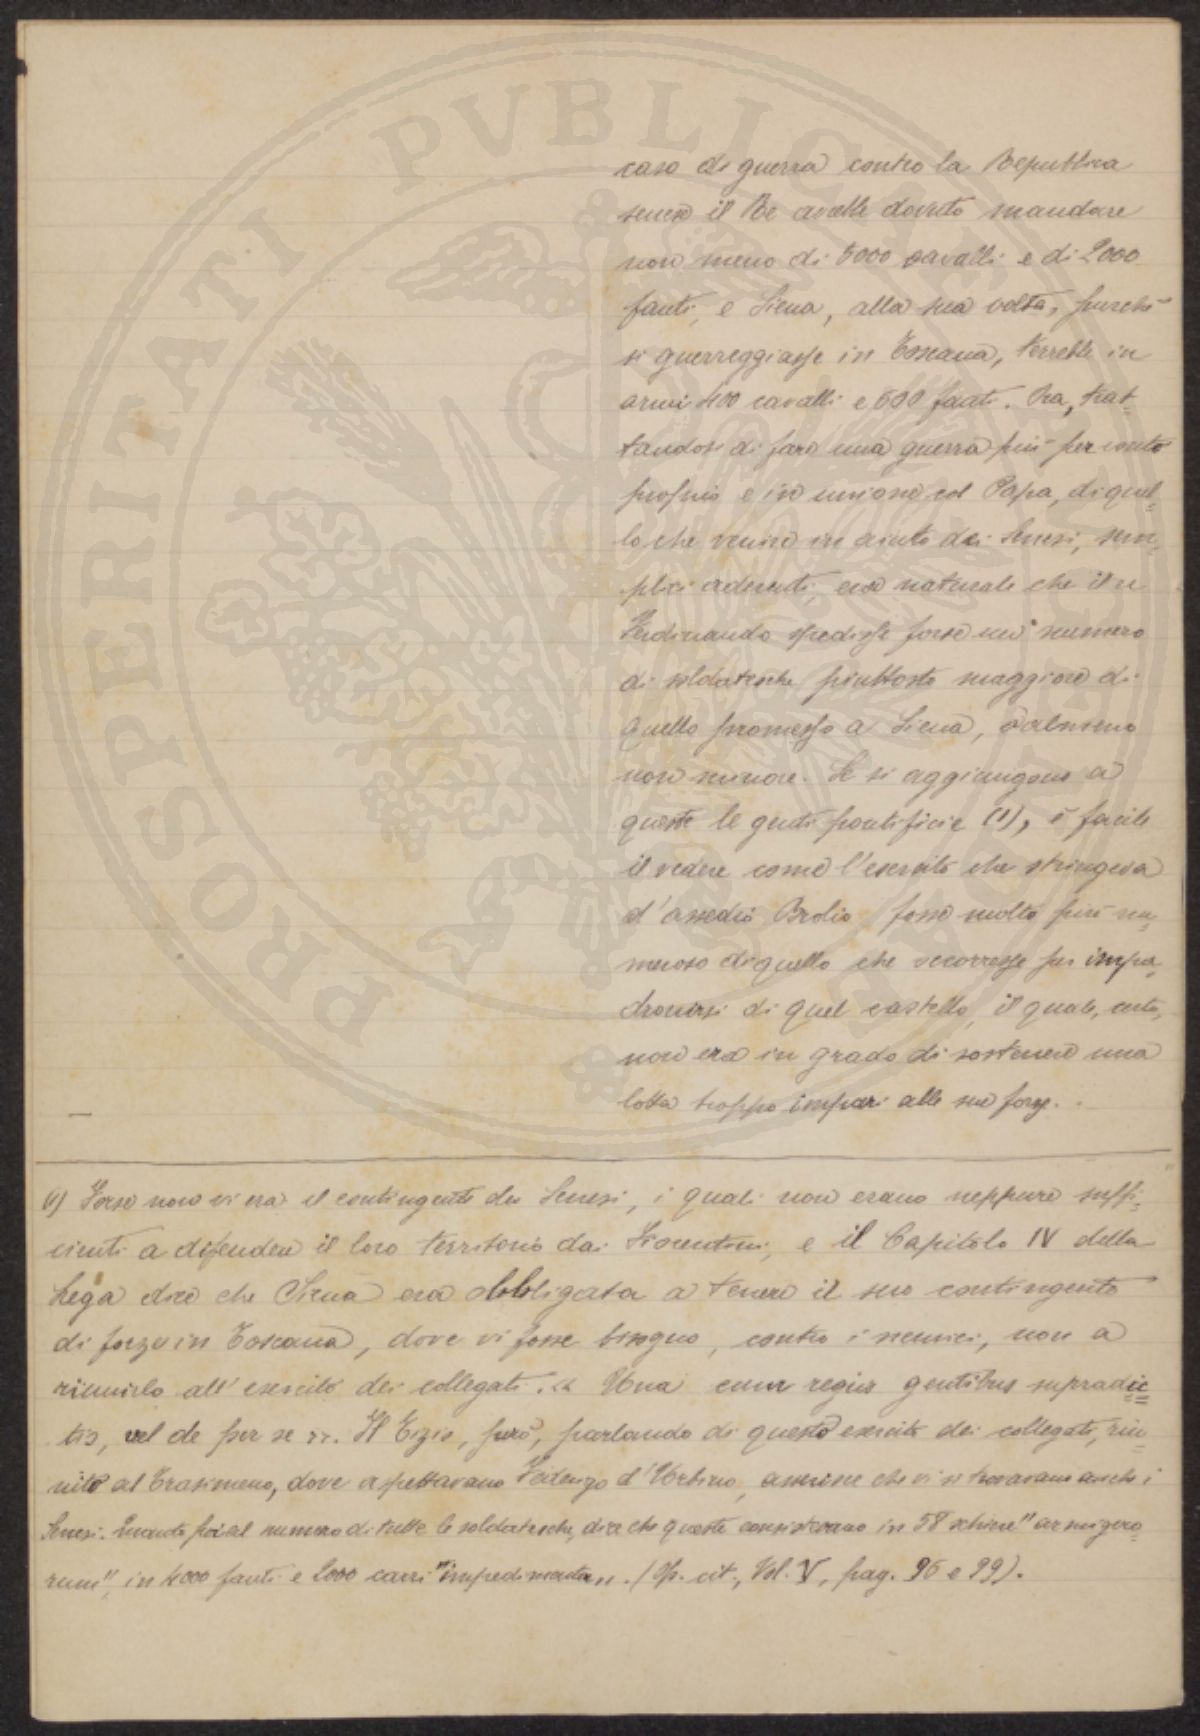 caso di guerra contro la Repubblica
senese il Re avesse dovuto mandare
non meno di 5000 cavalli e di 2000
fanti, e Siena, alla sua volta, purchè
si guerreggiasse in Toscana, terrebbe in
armi 400 cavalli e 500 fanti. Ora, trat-
tandosi di fare una guerra più per conto
proprio e in unione col Papa, di quel-
lo che venire in aiuto dei Senesi, sem-
plici aderenti, era naturale che il re
Ferdinando spedisse forse un numero
di soldatesche piuttosto maggiore di
quello promesso a Siena, o almeno
non minore. Se si aggiungono a
queste le genti pontificie (1), è facile
il vedere come l'esercito che stringeva
d'assedio Brolio fosse molto più nu-
meroso di quello che occorresse per impa-
dronirsi di quel castello, il quale, certo,
non era in grado di sostenere una
lotta troppo impari alle sue forze.
(1) Forse non vi era il contingente dei Senesi, i quali non erano neppure suffi-
cienti a difendere il loro territorio dai Fiorentini, e il Capitolo IV della
Lega dice che Siena era obbligata a tenere il suo contingente
di forze in Toscana, dove vi fosse bisogno, contro i nemici, non a
riunirlo all'esercito dei collegati. « Una cum regiis gentibus supradic-
tis, vel de per se ». Il Tizio, però, parlando di questo esercito dei collegati, riu-
nito al Trasimeno, dove aspettavano Federigo d'Urbino, asserisce che vi si trovavano anche i
Senesi. Quanto poi al numero di tutte le soldatesche, dice che queste consistevano in 58 schiere "armigero-
rum", in 4000 fanti e 2000 carri "impedimenta". (Op. cit., Vol. V, pag. 96 e 99).
PROSPERITATI PVBLICAE